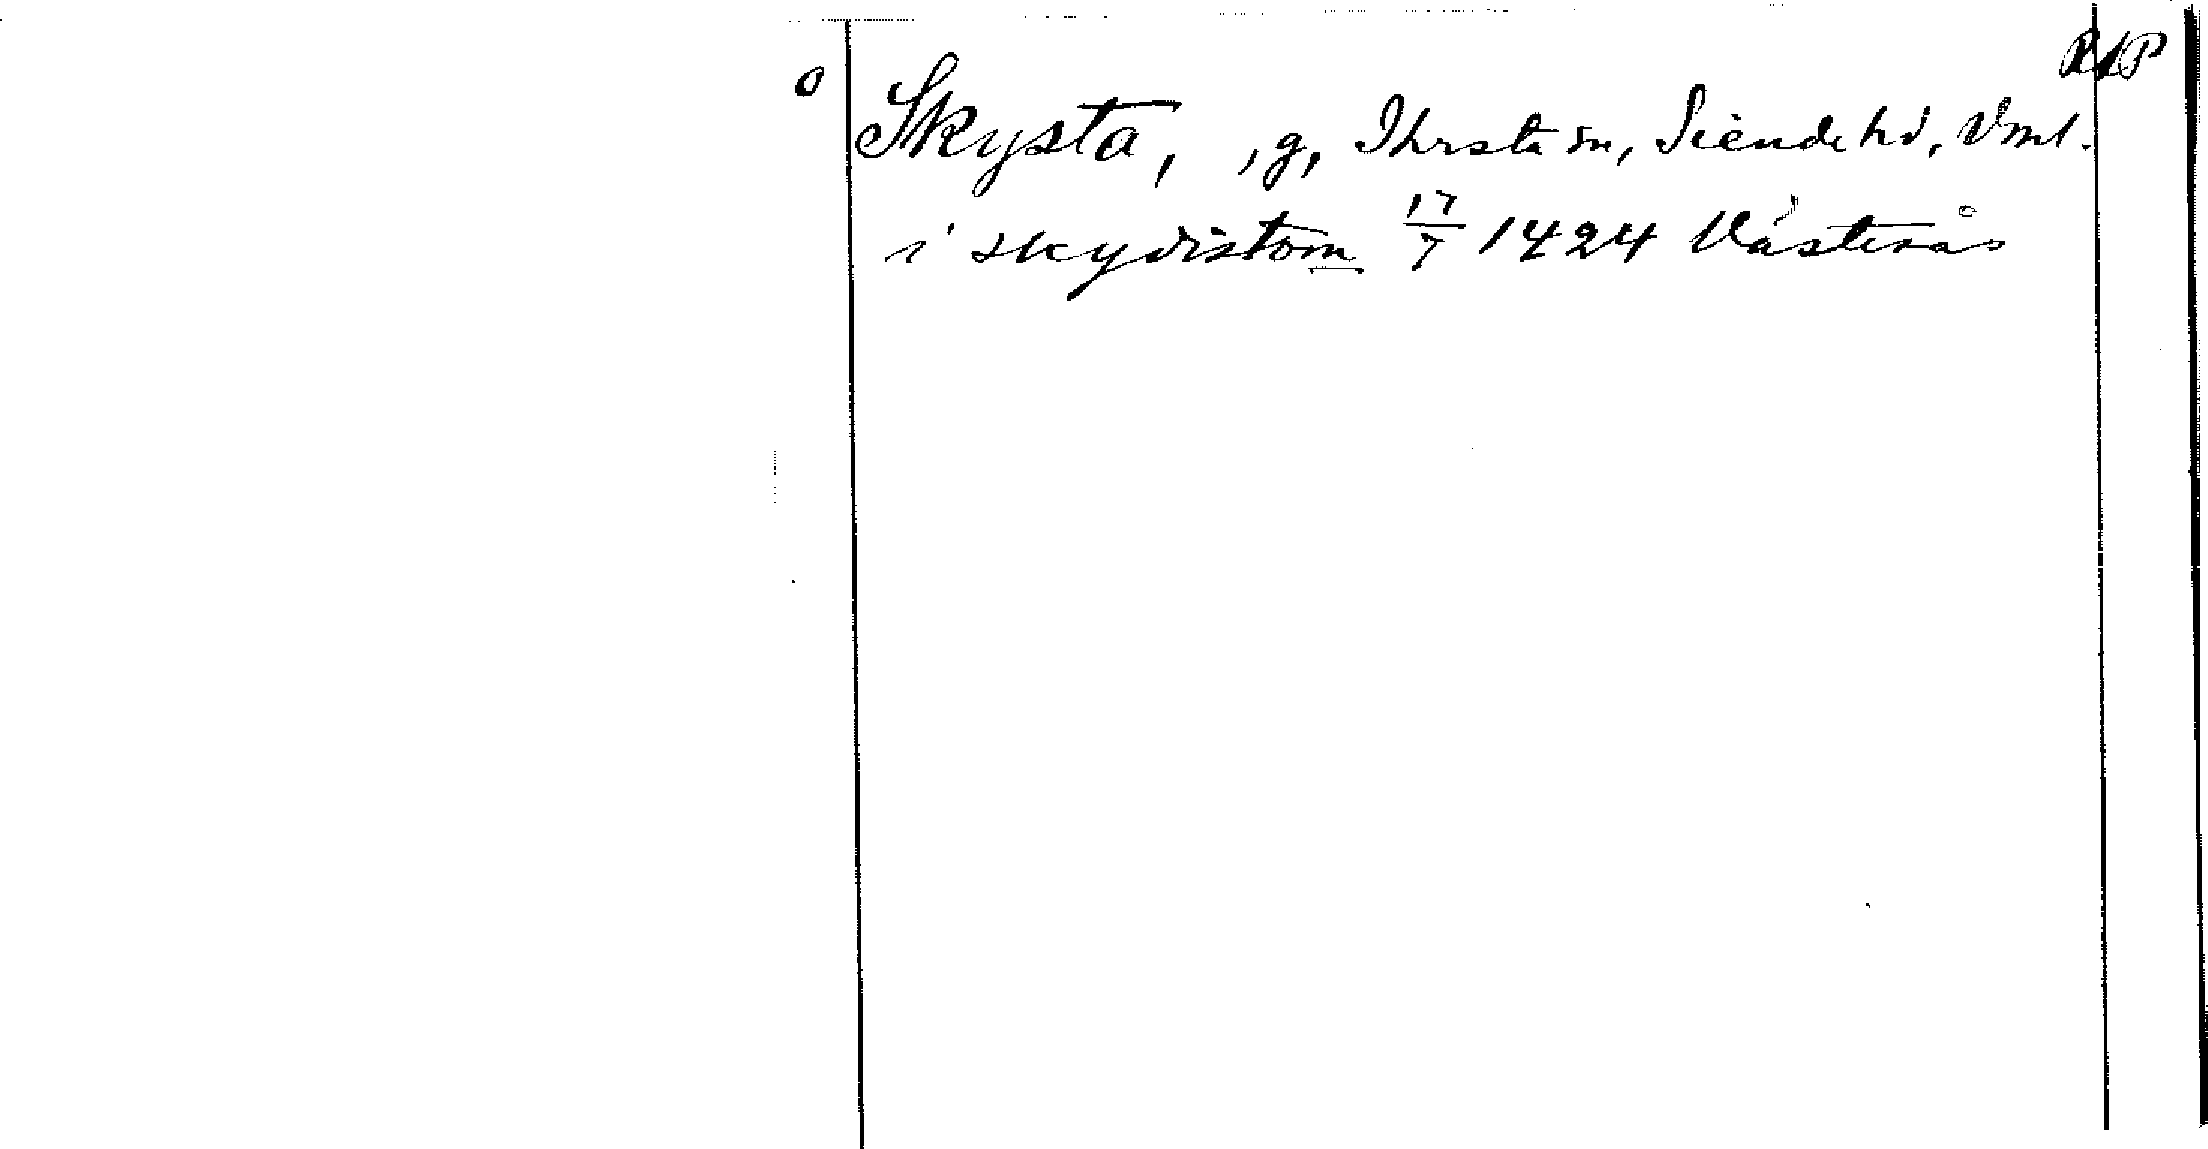 o
RAP
Skysta, , g, Ihrsta sn, Siende hd, Vml.
i skydistom 17/7 1424 Västerås